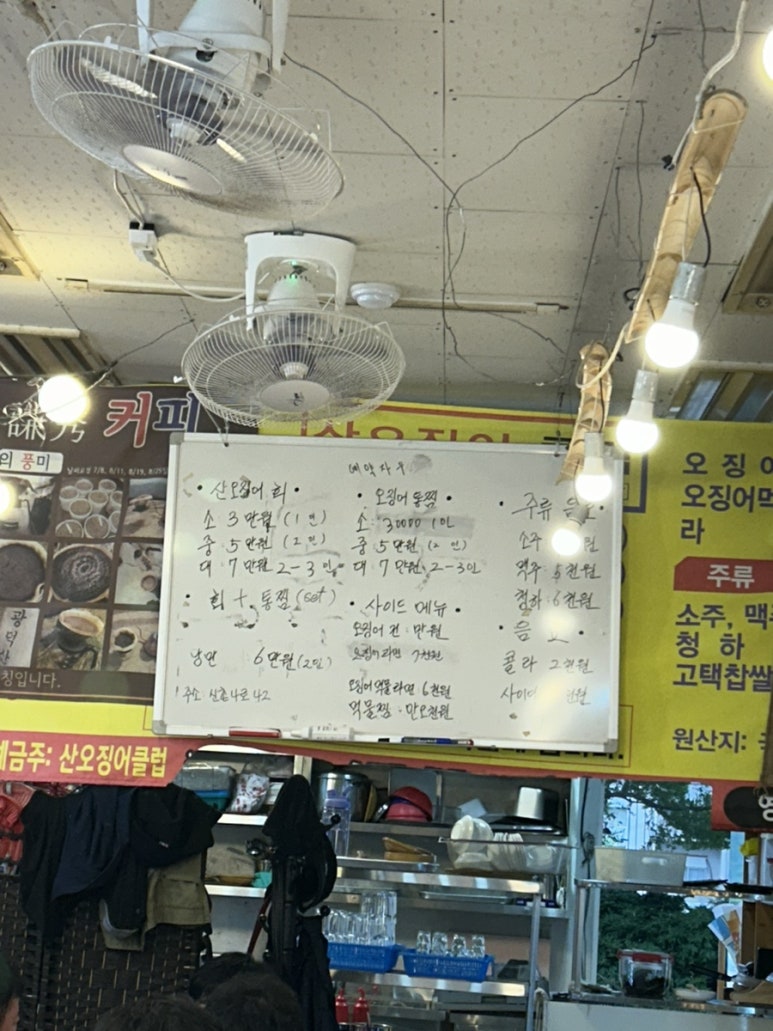 커피
의 풍미
예약
• 산오징어 회 •
소 3만원 (1인)
중 5만원 (2인)
대 7만원 2-3인
• 회 + 통찜 (set)
6만원 (2인)
주소: 신촌4로 42
• 오징어 통찜 •
소: 30000 1인
중 5만원 (2인)
대 7만원 2-3인
• 사이드 메뉴 •
오징어 전 : 만원
오징어라면 7천원
오징어먹물라면 6천원
먹물찜 : 만오천원
• 주류
소주
맥주 : 5천원
청하 : 6천원
• 음
콜라 2천원
사이다
오징어
오징어먹
라
주류
소주, 맥
청하
고택찹쌀
원산지:
칭입니다.
예금주: 산오징어클럽